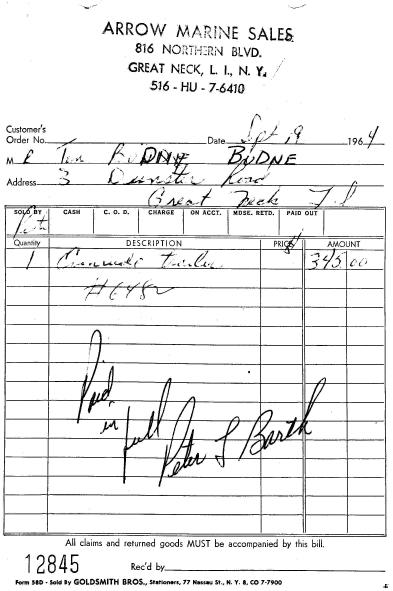 ARROW MARINE SALES
816 NORTHERN BLVD.
GREAT NECK, L. I., N. Y.
516 - HU - 7-6410
Customer's
Order No. Date Sept 19 1964
M r Tom BUDNE
Address 3 Road
Great Neck
SOLD BY CASH C. O. D. CHARGE ON ACCT. MDSE. RETD. PAID OUT
Pete
Quantity DESCRIPTION PRICE AMOUNT
1 345.00
#6482
Paid
in
full
Peter L Barth
All claims and returned goods MUST be accompanied by this bill.
12845 Rec'd by
Form 58D - Sold By GOLDSMITH BROS., Stationers, 77 Nassau St., N. Y. 8, CO 7-7900